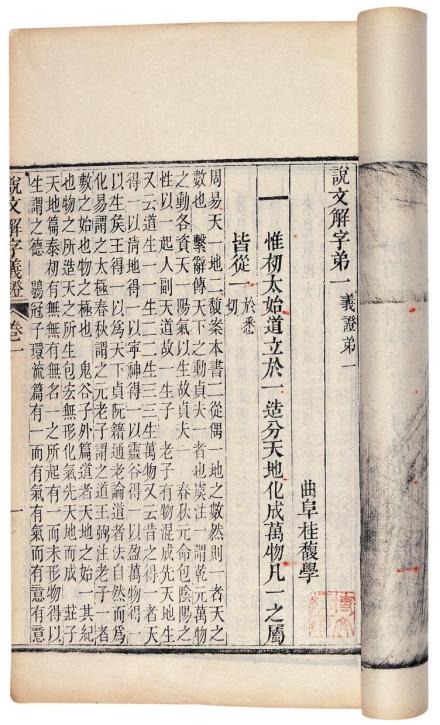 說文解字弟一 義證弟一
曲阜桂馥學
一 惟初太始道立於一造分天地化成萬物凡一之屬
皆從一 於悉切
周易天一地二馥案本書二從偶一地之數然則一者天之
數也 繫辭傳天下之動貞夫一者也虞注一謂乾元萬物
之動各資天一陽氣以生故貞夫一 春秋元命包陰陽之
性以一起人副天道故一生子 老子有物混成先天地生
又云道生一一生二二生三三生萬物又云昔之得一者天
得一以清地得一以寧神得一以靈谷得一以盈萬物得一
以生矦王得一以爲天下貞阮籍通老論道者法自然而爲
化易謂之太極春秋謂之元老子謂之道王弼注老子一者
數之始也物之極也 鬼谷子外篇道者天地之始一其紀
也物之所造天之所生包宏無形化氣先天地而成 莊子
天地篇泰初有無無有無名一之所起有一而未形物得以
生謂之德 鶡冠子環流篇有一而有氣有氣而有意有意
說文解字義證 卷一 一